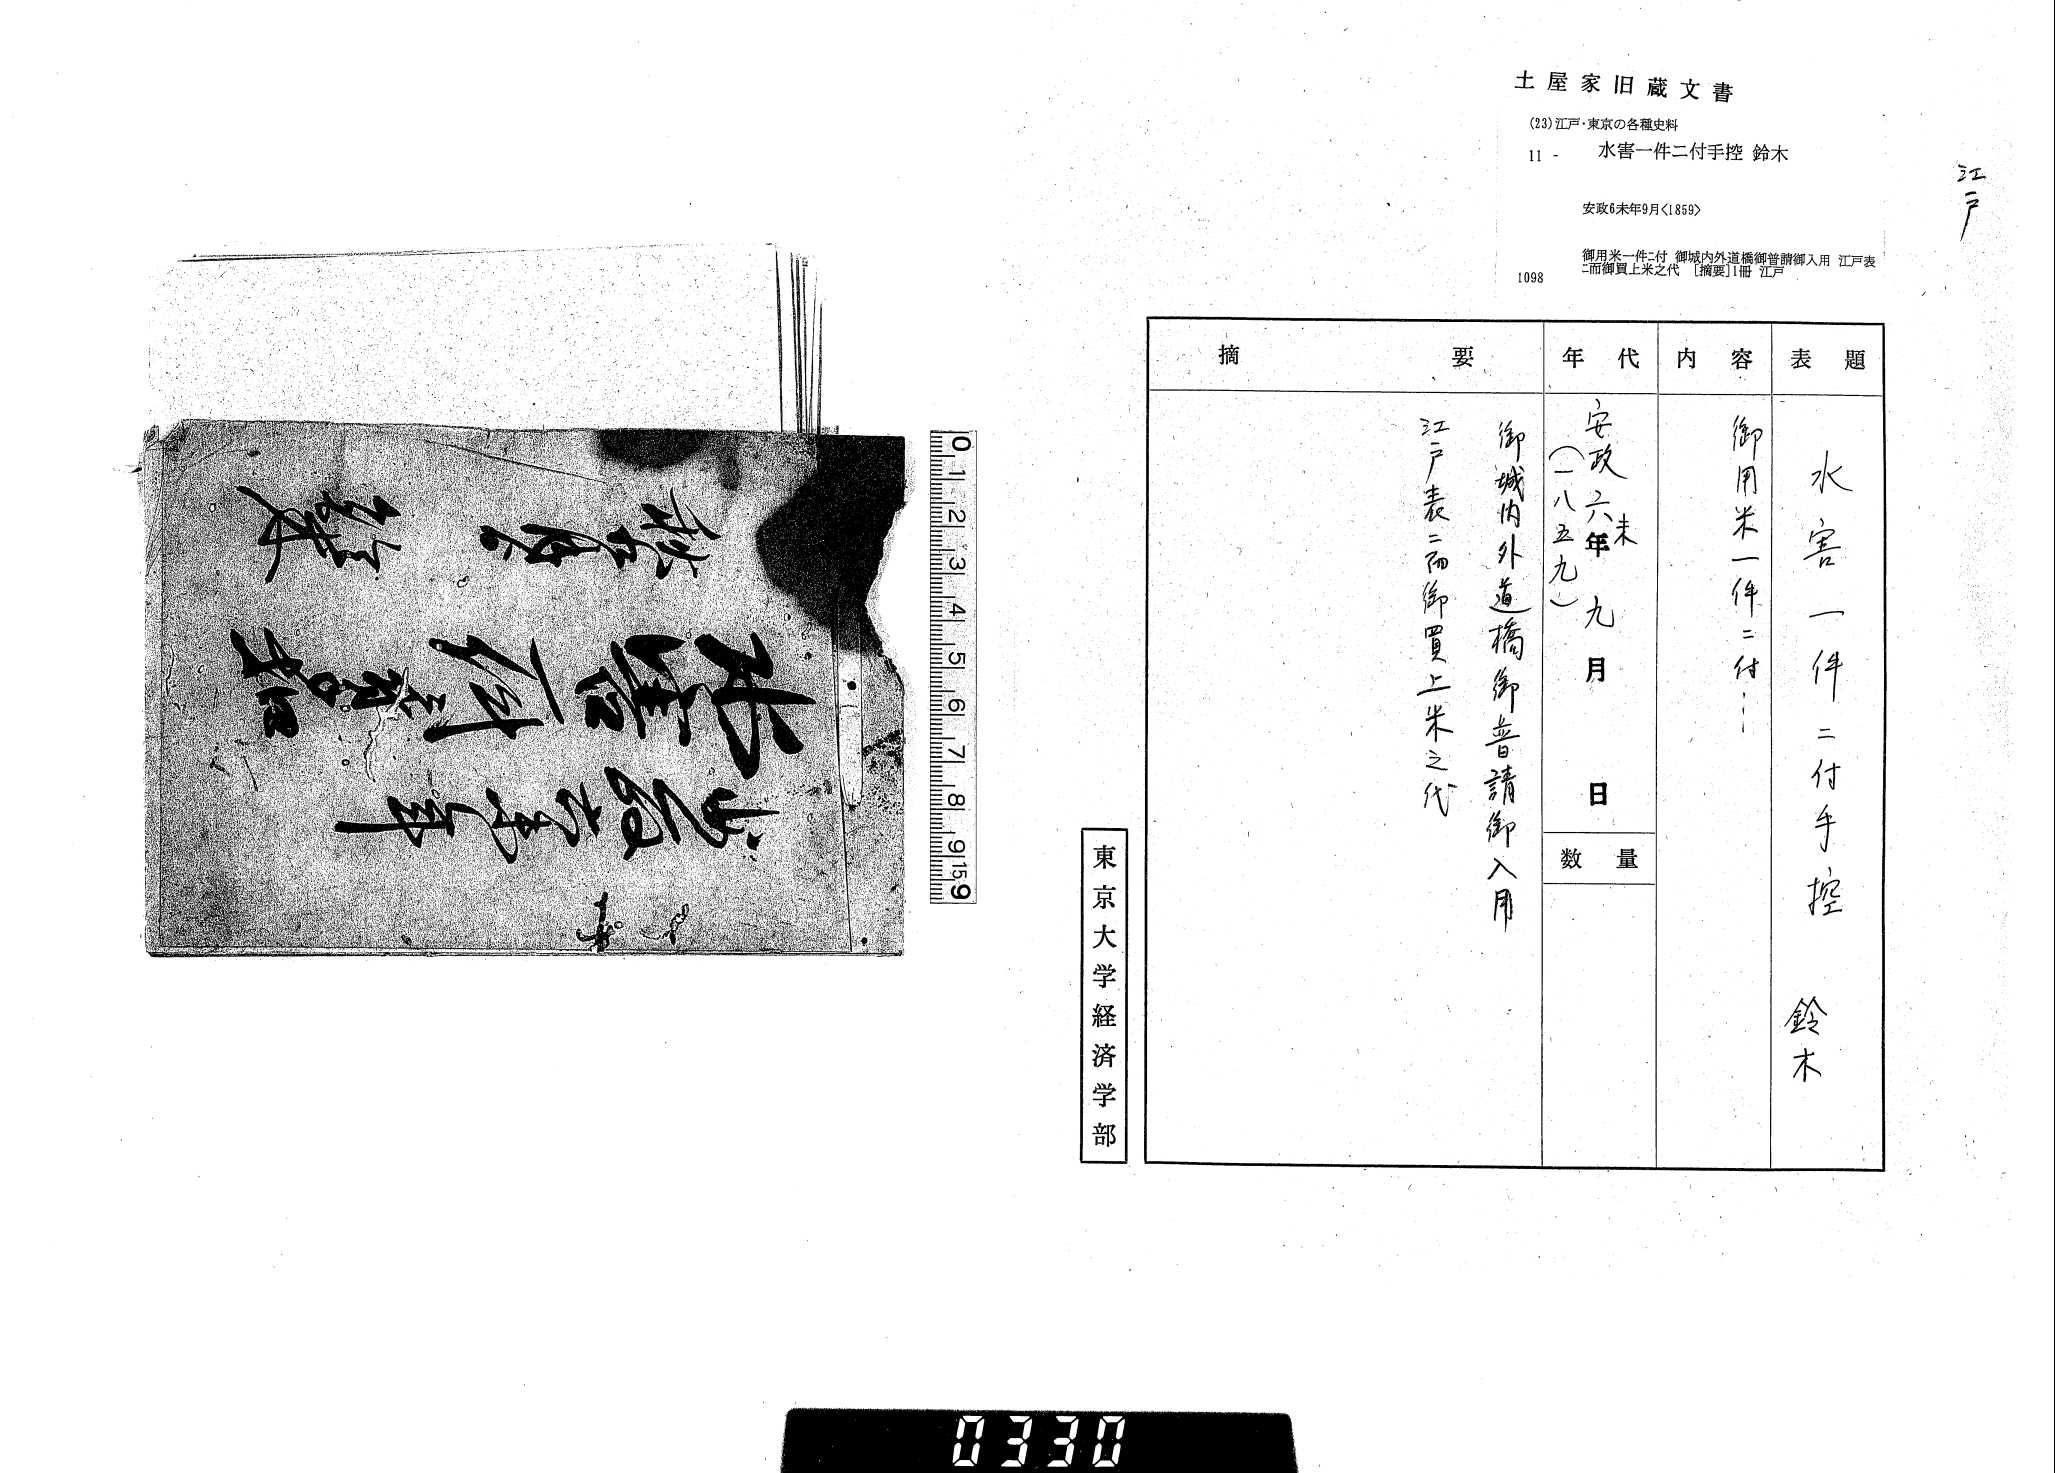 土屋家旧蔵文書
(23)江戸・東京の各種史料
11 - 水害一件ニ付手控 鈴木
安政6未年9月<1859>
御用米一件ニ付 御城内外道橋御普請御入用 江戸表
ニ而御買上米之代 [摘要]1冊 江戸
1098
江戸
表題
水害一件ニ付手控 鈴木
内容
御用米一件ニ付…
年代
安政六未年九月 日
(一八五九)
数量
摘要
御城内外道橋御普請御入用
江戸表ニ而御買上米之代
東京大学経済学部
水害一件
手控
鈴木
0 1 2 3 4 5 6 7 8 9 15 9
0330